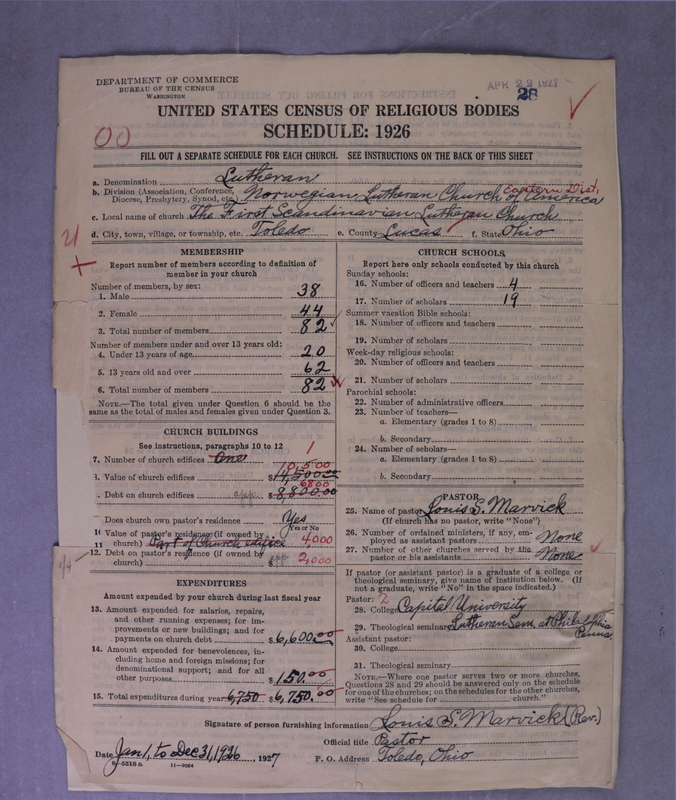 DEPARTMENT OF COMMERCE
BUREAU OF THE CENSUS
WASHINGTON
APR 22 1927
28
UNITED STATES CENSUS OF RELIGIOUS BODIES
SCHEDULE: 1926
00
FILL OUT A SEPARATE SCHEDULE FOR EACH CHURCH. SEE INSTRUCTIONS ON THE BACK OF THIS SHEET
a. Denomination Lutheran
b. Division (Association, Conference, Diocese, Presbytery, Synod, etc.) Norwegian Lutheran Church of America Eastern Dist.
c. Local name of church The First Scandinavian Lutheran Church
d. City, town, village, or township, etc. Toledo e. County Lucas f. State Ohio
MEMBERSHIP
Report number of members according to definition of
member in your church
Number of members, by sex:
1. Male 38
2. Female 44
3. Total number of members 82
Number of members under and over 13 years old:
4. Under 13 years of age 20
5. 13 years old and over 62
6. Total number of members 82
NOTE.—The total given under Question 6 should be the
same as the total of males and females given under Question 3.
CHURCH BUILDINGS
See instructions, paragraphs 10 to 12
7. Number of church edifices One 1
8. Value of church edifices $14,500.00 10,500
. Debt on church edifices $8,800.00 6800
Does church own pastor's residence Yes
Yes or No
11 Value of pastor's residence (if owned by
church) Part of Church edifice 4,000
12. Debt on pastor's residence (if owned by
church) $ 2,000
EXPENDITURES
Amount expended by your church during last fiscal year
13. Amount expended for salaries, repairs,
and other running expenses; for im-
provements or new buildings; and for
payments on church debt $6,600.00
14. Amount expended for benevolences, in-
cluding home and foreign missions; for
denominational support; and for all
other purposes $150.00
15. Total expenditures during year 6,750 $6,750.00
CHURCH SCHOOLS
Report here only schools conducted by this church
Sunday schools:
16. Number of officers and teachers 4
17. Number of scholars 19
Summer vacation Bible schools:
18. Number of officers and teachers
19. Number of scholars
Week-day religious schools:
20. Number of officers and teachers
21. Number of scholars
Parochial schools:
22. Number of administrative officers
23. Number of teachers—
a. Elementary (grades 1 to 8)
b. Secondary
24. Number of scholars—
a. Elementary (grades 1 to 8)
b. Secondary
PASTOR
25. Name of pastor Louis S. Marvick
(If church has no pastor, write "None")
26. Number of ordained ministers, if any, em-
ployed as assistant pastors None
27. Number of other churches served by the
pastor or his assistants None
If pastor (or assistant pastor) is a graduate of a college or
theological seminary, give name of institution below. (If
not a graduate, write "No" in the space indicated.)
Pastor: 2
28. College Capital University
29. Theological seminary Lutheran Sem. at Philadelphia Penna.
Assistant pastor:
30. College
31. Theological seminary
NOTE.—Where one pastor serves two or more churches,
Questions 28 and 29 should be answered only on the schedule
for one of the churches; on the schedules for the other churches,
write "See schedule for church."
Signature of person furnishing information Louis S. Marvick (Rev.)
Official title Pastor
Date Jan 1, to Dec 31, 1926, 1927 P. O. Address Toledo, Ohio
8-5518 a 11-9084